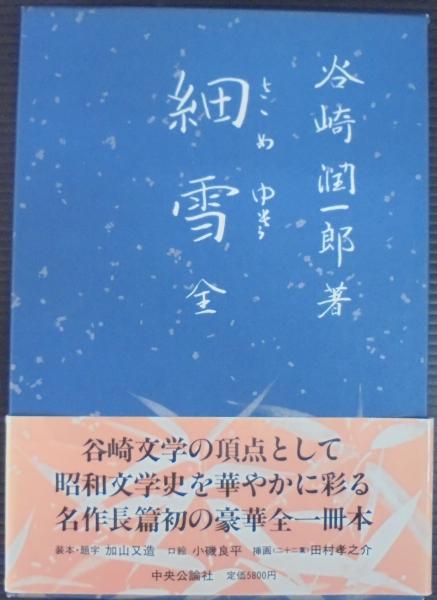 谷崎潤一郎著
細雪 全
ささめゆき
谷崎文学の頂点として
昭和文学史を華やかに彩る
名作長篇初の豪華全一冊本
装本・題字 加山又造 口絵 小磯良平 挿画(二十二葉)田村孝之介
中央公論社 定価5800円